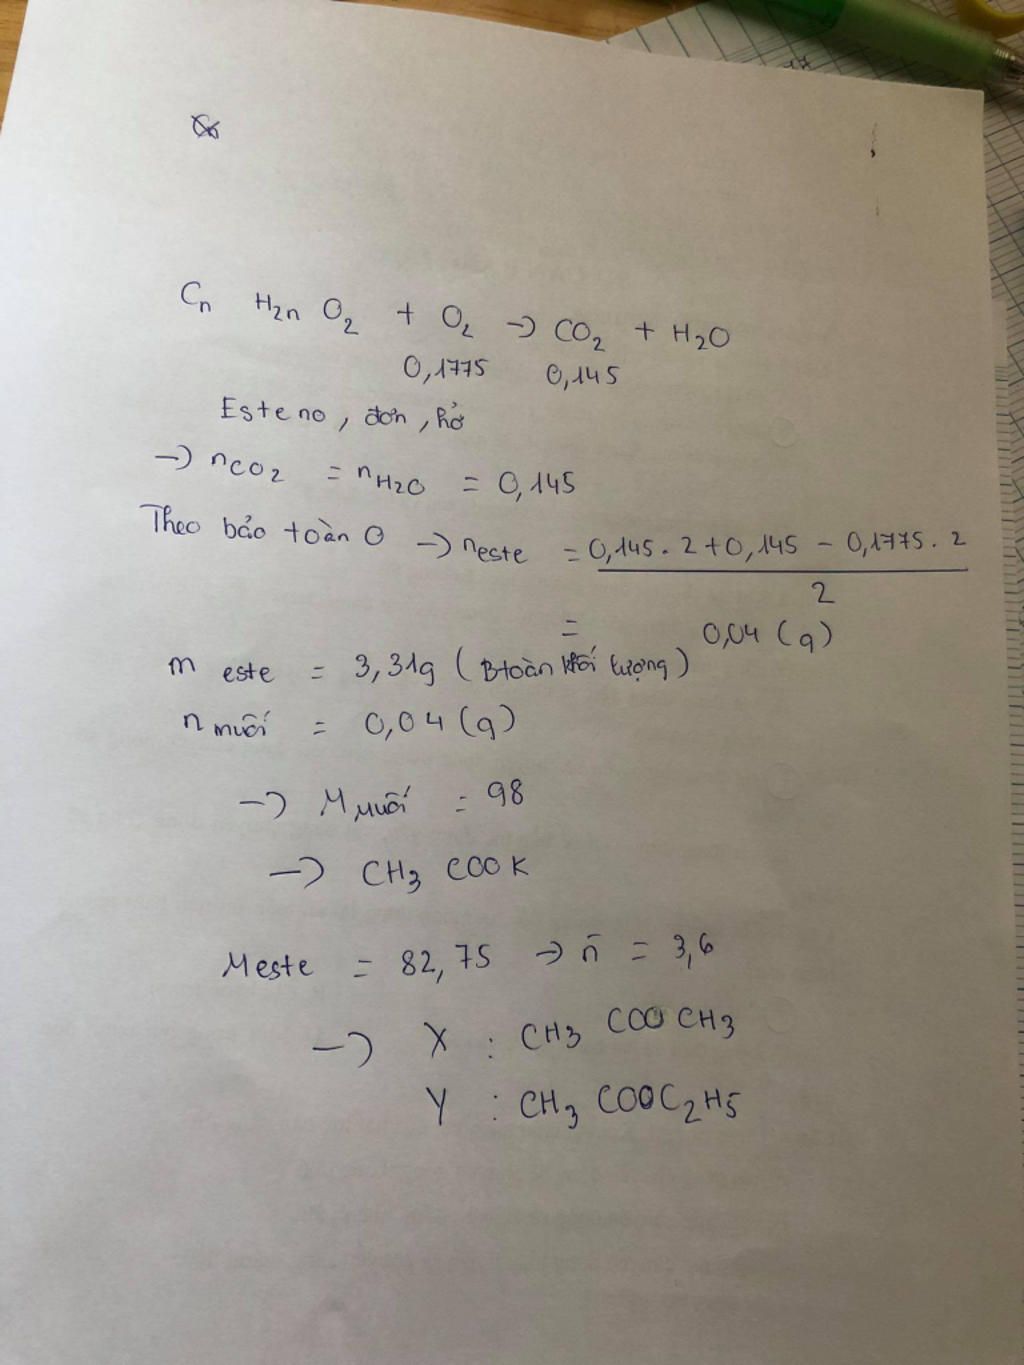 Cn H2n O2 + O2 → CO2 + H2O
0,1775 0,145
Este no, đơn, hở
→ nCO2 = nH2O = 0,145
Theo bảo toàn O → neste = 0,145. 2 + 0,145 - 0,1775. 2
2
= 0,04 (g)
m este = 3,31g (Btoàn khối lượng)
n muối = 0,04 (g)
→ M muối = 98
→ CH3 COOK
Meste = 82,75 → n̄ = 3,6
→ X : CH3 COO CH3
Y : CH3 COOC2H5